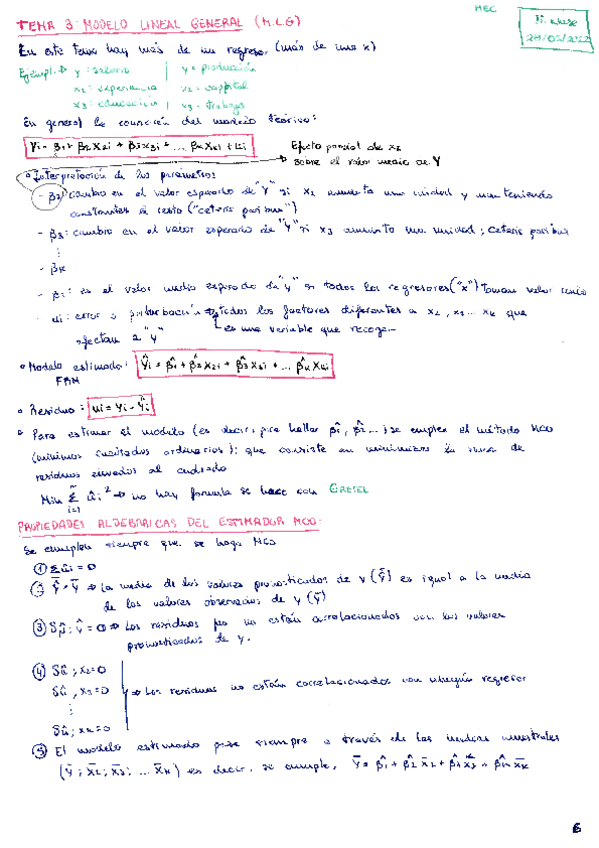 MEC
TEMA 3: MODELO LINEAL GENERAL (M.L.G)
En este tema hay más de un regresor (más de una x)
Ejemplo → y: salario | y = producción
x2: experiencia | x2 = capital
x3: educación | x3 = trabajo
En general la ecuación del modelo teórico:
Yi = β1 + β2 X2i + β3 X3i + ... βk Xki + ui
Efecto parcial de x2
sobre el valor medio de Y
• Interpretación de los parámetros
- β2: cambio en el valor esperado de "Y" si x2 aumenta una unidad y manteniendo
constantes el resto ("ceteris paribus")
- β3: cambio en el valor esperado de "Y" si x3 aumenta una unidad; ceteris paribus
⋮
- βk
- β1: es el valor medio esperado de "y" si todos los regresores ("x") toman valor cero
- ui: error o perturbación → todos los factores diferentes a x2, x3 ... xk que
afectan a "y"
es una variable que recoge...
• Modelo estimado: Ŷi = β̂1 + β̂2 X2i + β̂3 X3i + ... β̂k Xki
FRM
• Residuo: ûi = Yi - Ŷi
• Para estimar el modelo (es decir, para hallar β̂1, β̂2 ...) se emplea el método MCO
(mínimos cuadrados ordinarios); que consiste en minimizar la suma de
residuos elevados al cuadrado
Min Σ ûi² → no hay formula se hace con GRETEL
PROPIEDADES ALGEBRAICAS DEL ESTIMADOR MCO:
Se cumplen siempre que se haga MCO
① Σûi = 0
② Ŷ = Ȳ → La media de los valores pronosticados de y (Ŷ) es igual a la media
de los valores observados de y (Ȳ)
③ Sû; Ŷ = 0 → Los residuos no están correlacionados con los valores
pronosticados de y.
④ Sû; x2 = 0
Sû; x3 = 0 → Los residuos no están correlacionados con ningún regresor
⋮
Sû; xk = 0
⑤ El modelo estimado pasa siempre a través de las medias muestrales
(Ȳ; X̄2; X̄3; ... X̄k) es decir, se cumple, Ȳ = β̂1 + β̂2 X̄2 + β̂3 X̄3 .. β̂k X̄k
6